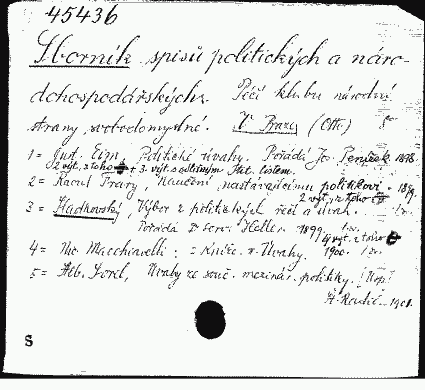 45436
Sborník spisů politických a náro-
dohospodářských. Péčí klubu národní
strany svobodomyslné. V Praze, (Otto) 8°
1 = Gust. Eim, Politické úvahy. Pořádá Jos. Penížek 1898.
2 výt. z toho + 3. výt. s odlišným tit. listem.
2 = Raoul Frary, Naučení nastávajícímu politikovi. 1899.
2 výt. z toho
3 = Sladkovský, Výbor z politických řečí a úvah.
Pořádá Dr Serv. Heller. 1899
výt. z toho
4 = Nic. Macchiavelli: Kníže. Úvahy. 1900.
5 = Alb. Sorel, Úvahy ze souč. mezinár. politiky.
A. Radič. 1901.
S